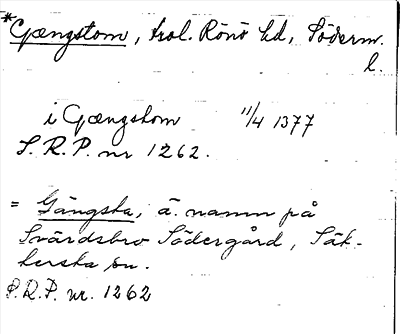 *Gængstom, trol. Rönö hd, Söderm.
l.
i Gængstom 11/4 1377
S.R.P. nr 1262.
= Gängsta, ä. namn på
Svärdsbro Södergård, Läk-
kerska sn.
S.R.P. nr. 1262